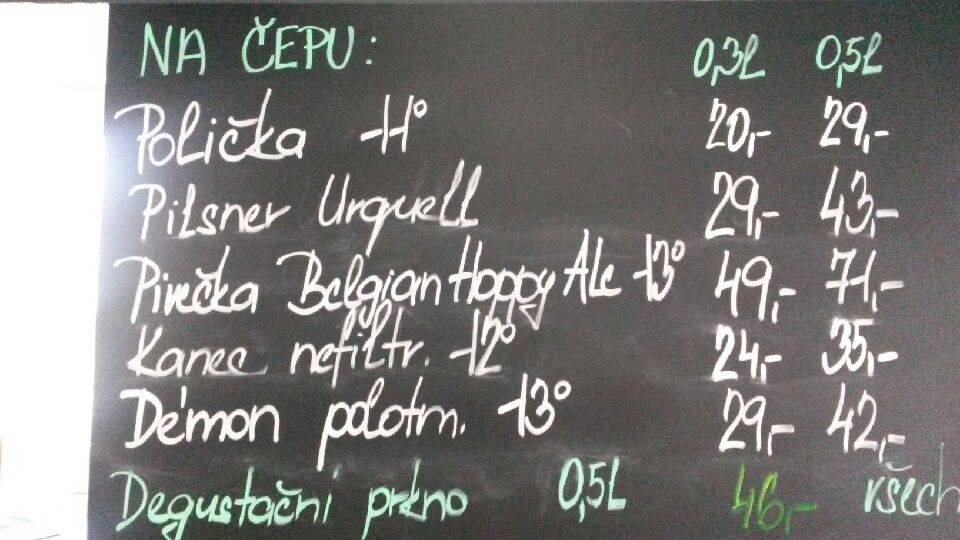 NA ČEPU: 0,3L 0,5L
Polička 11° 20,- 29,-
Pilsner Urquell 29,- 43,-
Pivečka Belgian Hoppy Ale 13° 49,- 71,-
Kanec nefiltr. 12° 24,- 35,-
Démon polotm. 13° 29,- 42,-
Degustační prkno 0,5L 46,- všech